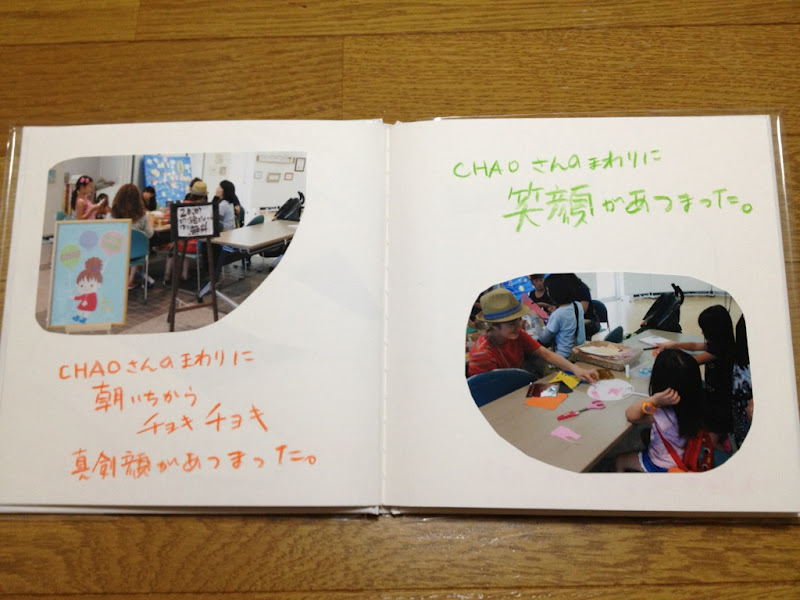 CHAOさんのまわりに
朝いちから
チョキチョキ
真剣顔があつまった。
CHAOさんのまわりに
笑顔があつまった。